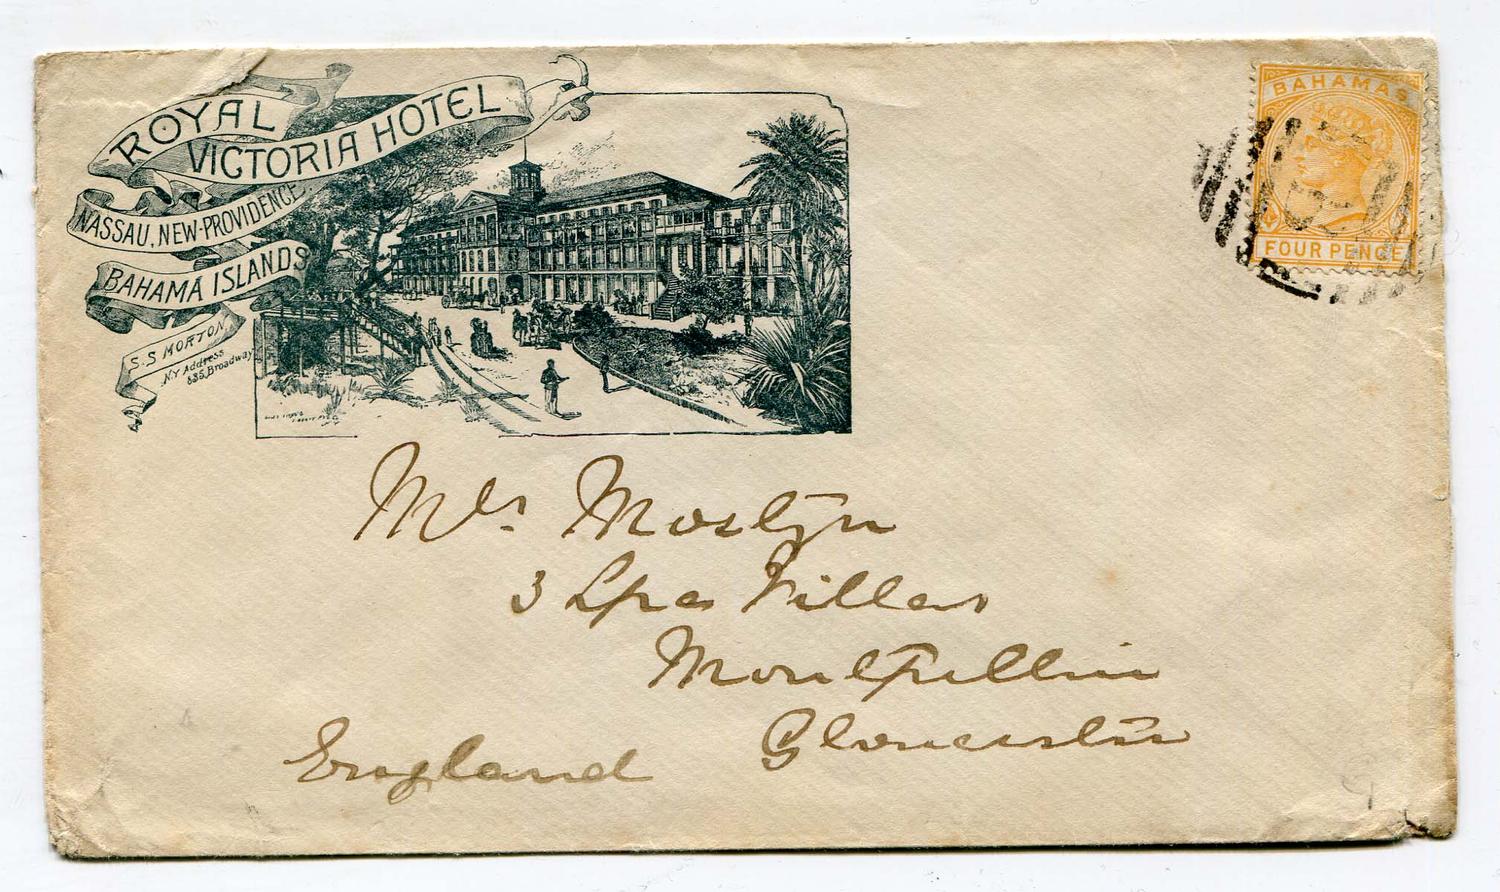 ROYAL
VICTORIA HOTEL
NASSAU, NEW-PROVIDENCE
BAHAMA ISLANDS
S-S MORTON
N.Y Address
685, Broadway
BAHAMAS
FOUR PENCE
Mrs Mostyn
3 Spa Villas
Montpellier
Gloucester
England